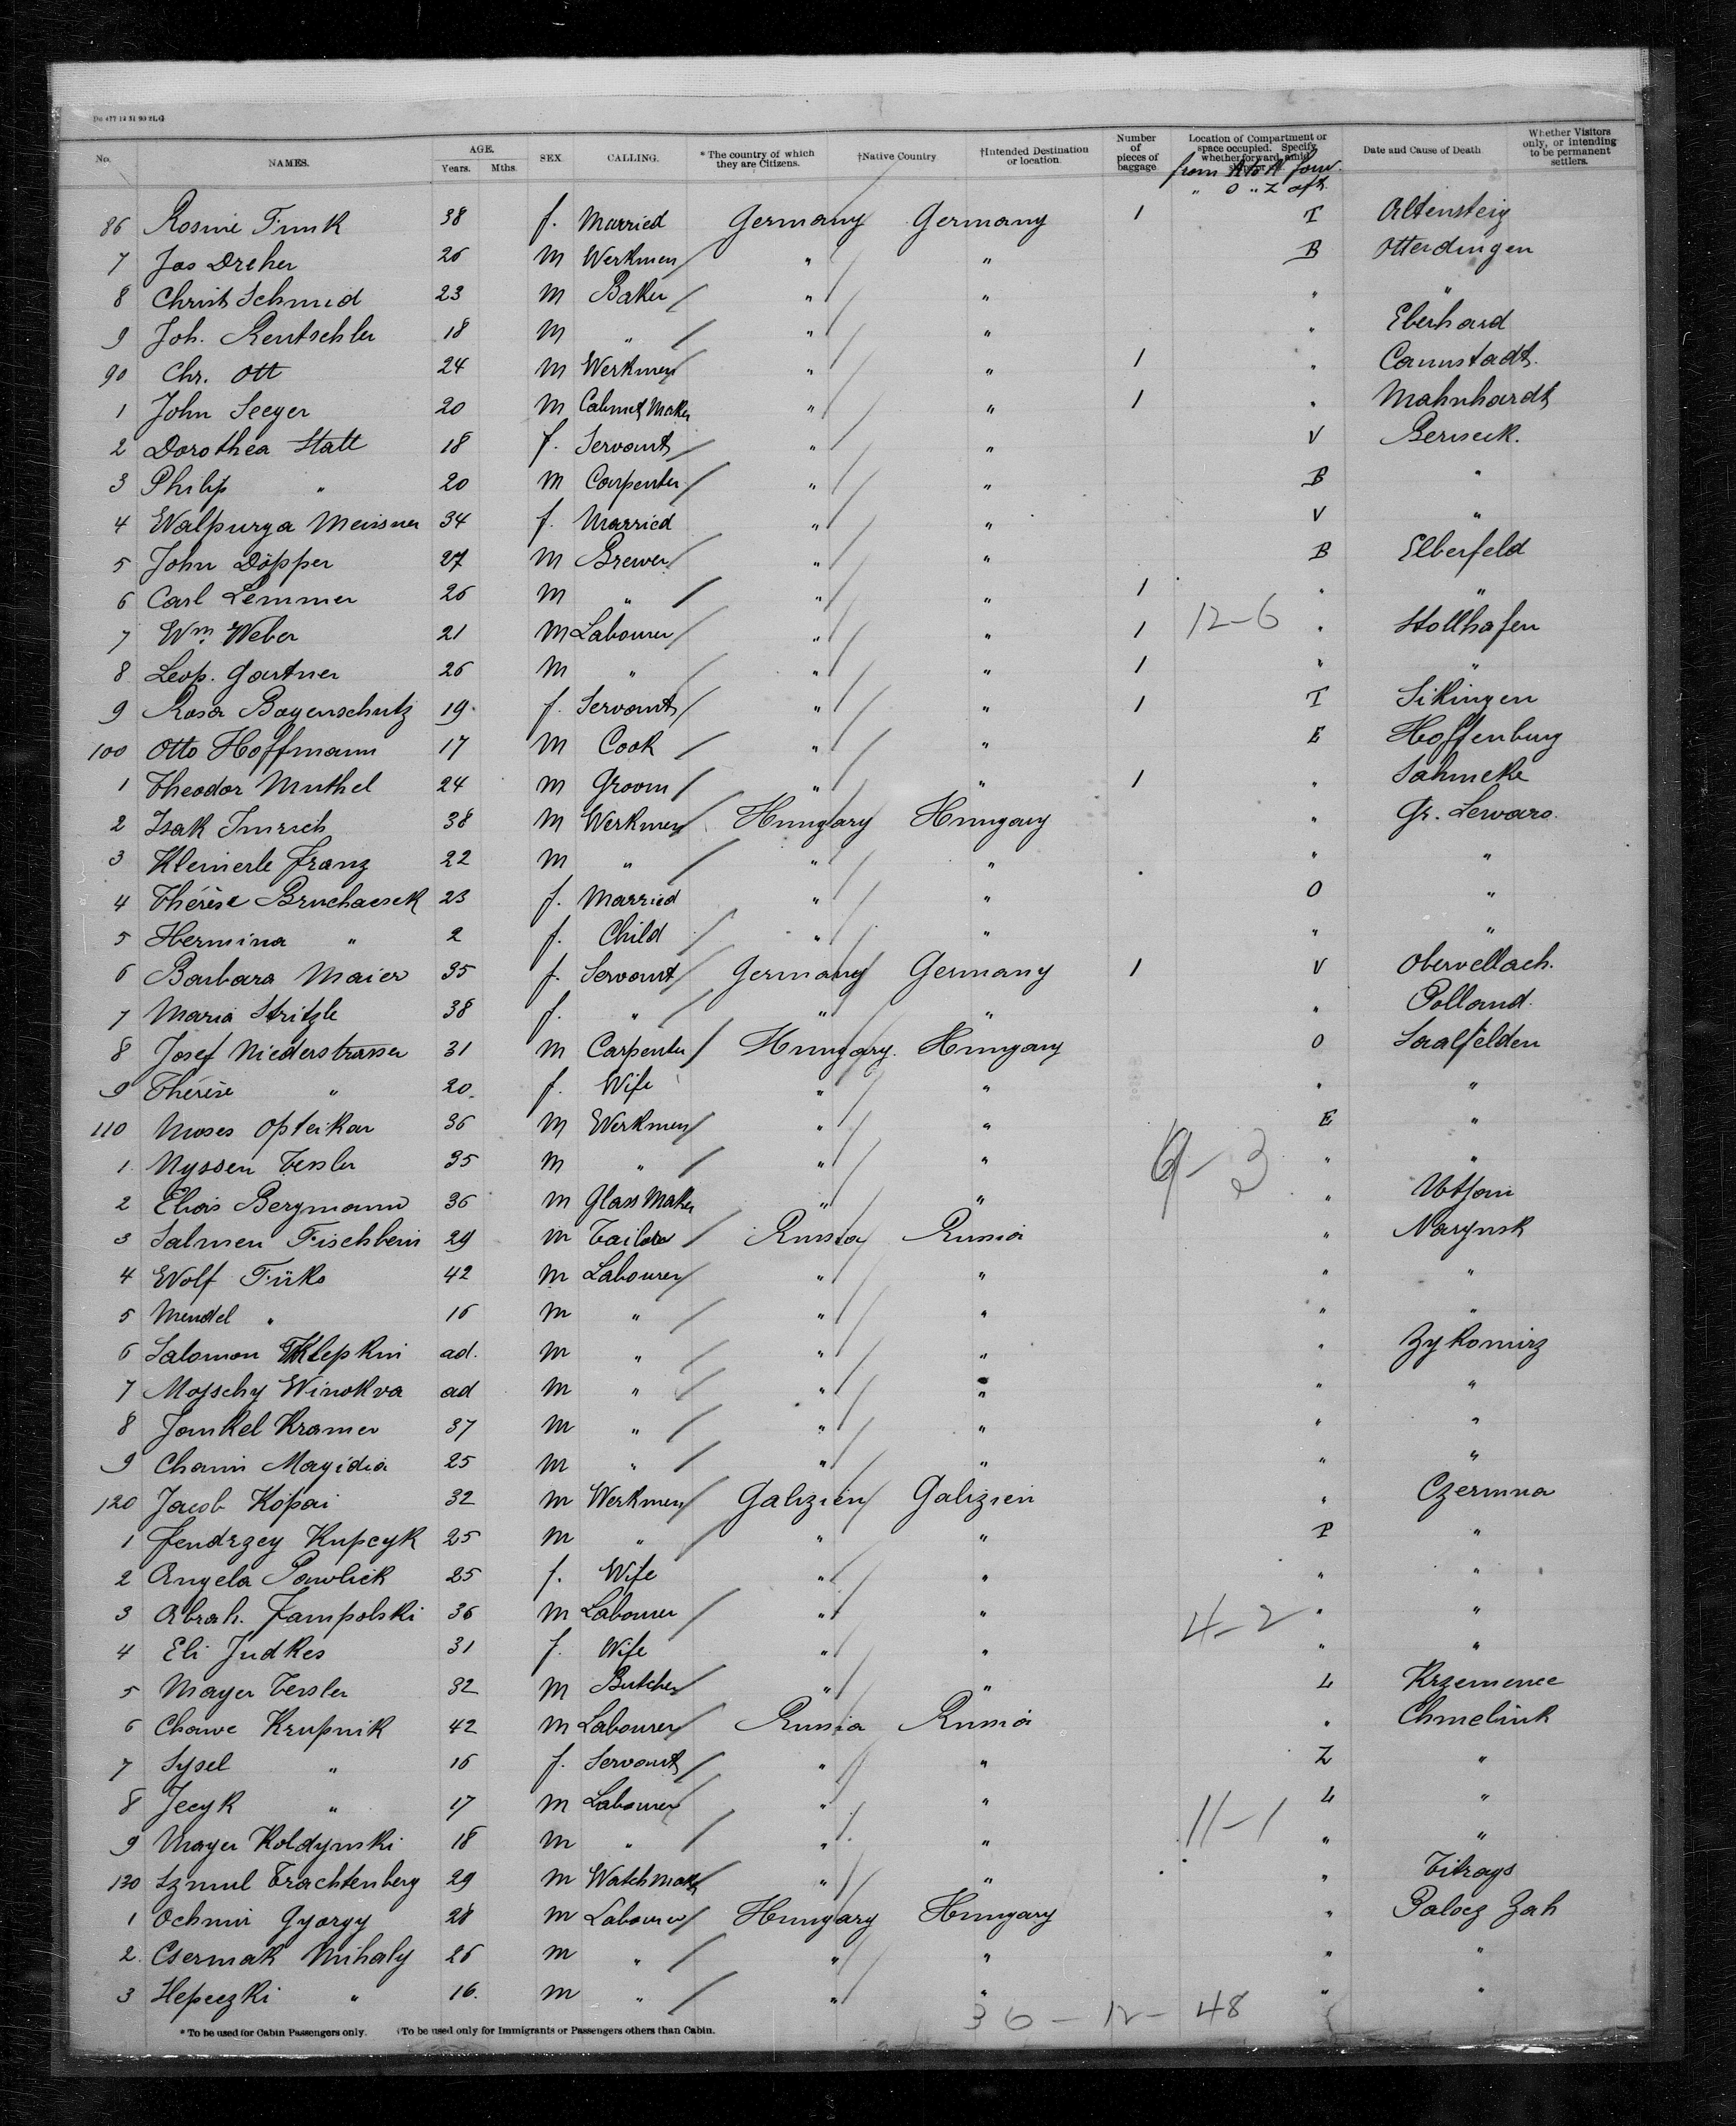 No. NAMES. AGE. Years. Mths. SEX. CALLING. * The country of which they are Citizens. †Native Country †Intended Destination or location. Number of pieces of baggage Location of Compartment or space occupied. Specify whether forward, amid Date and Cause of Death Whether Visitors only, or intending to be permanent settlers.
from A to N forw.
" O " Z aft.
86 Rosine Funk 38 f. Married Germany Germany 1 T Altensteig
7 Jos Dreher 26 M Werkmen " " B Otterdingen
8 Christ Schmid 23 M Baker " " " "
9 Joh. Rentschler 18 M " " " " Eberhard
90 Chr. Ott 24 M Werkmen " " 1 " Cannstadt.
1 John Seeger 20 M Cabinet Maker " " 1 " Mahnhardt
2 Dorothea Statt 18 f. Servant " " V Berneck.
3 Philip " 20 M Carpenter " " B "
4 Walpurga Meissner 34 f. Married " " V "
5 John Döpper 27 M Brewer " " B Elberfeld
6 Carl Lemmer 26 M " " " 1 " "
7 Wm. Weber 21 M Labourer " " 1 12-6 " Stollhafen
8 Leop. Gartner 26 M " " " 1 " "
9 Rosa Bogenschutz 19 f. Servant " " 1 T Sikingen
100 Otto Hoffmann 17 M Cook " " E Hoffenburg
1 Theodor Muthel 24 M Groom " " 1 " Sahmeke
2 Isak Imrich 38 M Werkmen Hungary Hungary " Gr. Lewars.
3 Kleinerle Franz 22 M " " " " "
4 Thérèse Bruchaesek 23 f. Married " " O "
5 Hermina " 2 f. Child " " " "
6 Barbara Maier 35 f. Servant Germany Germany 1 V Obervellach.
7 Maria Stritzle 38 f. " " " " Polland.
8 Josef Niederstrasser 31 M Carpenter Hungary. Hungary O Saalfelden
9 Thérèse " 20 f. Wife " " " "
110 Moses Opteikar 36 M Werkmen " " E "
1 Nyssen Tessler 35 M " " " 9-3 " "
2 Elias Bergmann 36 M Glass Maker " " "
3 Salmen Fischbein 29 M Tailor Russia Russia " Narynsk
4 Wolf Fürks 42 M Labourer " " " "
5 Mendel " 16 M " " " " "
6 Salomon Klepkin ad. M " " " " Zykomirz
7 Mojschy Winokva ad M " " " " "
8 Jankel Kramer 37 M " " " " "
9 Chaim Magidia 25 M " " " " "
120 Jacob Kópai 32 M Werkmen Galizien Galizien " Czermna
1 Jendrzey Kupcyk 25 M " " " P "
2 Angela Pawlick 25 f. Wife " " " "
3 Abrah. Jampolski 36 M Labourer " " 4-2 " "
4 Eli Judkes 31 f. Wife " " " "
5 Mayer Tessler 32 M Butcher " " L Krzemence
6 Chawe Krupnik 42 M Labourer Russia Russia " Chmelink
7 Sysel " 16 f. Servant " " Z "
8 Jecyk " 17 M Labourer " " L "
9 Mayer Koldynski 18 M " " " 11-1 " "
130 Szmul Trachtenberg 29 M Watchmaker " " " Titrays
1 Ochmir Gyorgy 28 M Labourer Hungary Hungary " Palocz Zah
2 Csermak Mihaly 26 M " " " " "
3 Hepeczki " 16. M " " " " "
36 - 12 - 48
* To be used for Cabin Passengers only. †To be used only for Immigrants or Passengers others than Cabin.